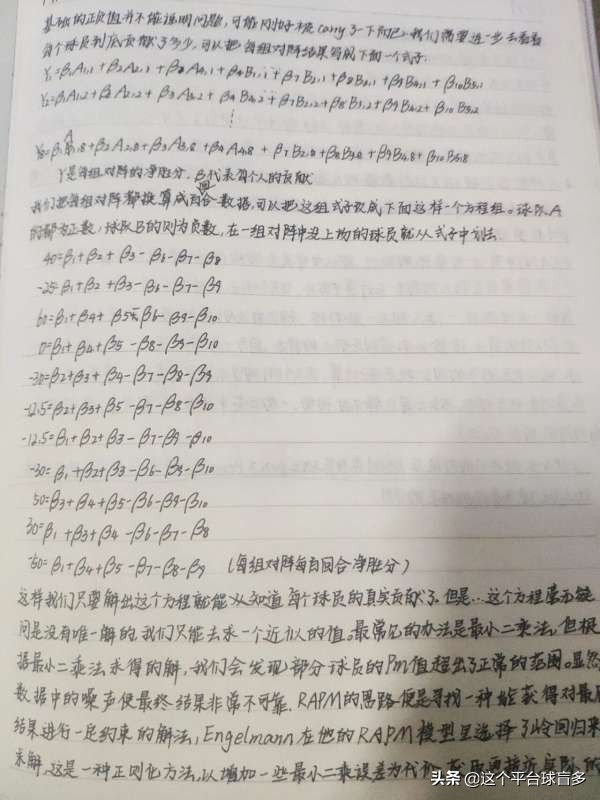 基础的正负值并不能说明问题,可能阿猫被carry了一下而已,我们需要进一步去看看
每个球员到底贡献了多少,可以把每组对阵结果写成下面一个式子:
Y₁=β₁A₁,₁+β₂A₂,₁+β₃A₃,₁+β₄B₁,₁+β₇B₂,₁+β₈B₃,₁+β₉B₄,₁+β₁₀B₅,₁
Y₂=β₁A₁,₂+β₂A₂,₂+β₃A₃,₂+β₄B₄,₂+β₇B₂,₂+β₈B₃,₂+β₉B₄,₂+β₁₀B₅,₂
⋮
Y₈=β₁A₁,₈+β₂A₂,₈+β₃A₃,₈+β₄A₄,₈+β₇B₂,₈+β₈B₃,₈+β₉B₄,₈+β₁₀B₅,₈
Y是每组对阵的净胜分,β代表每个人的贡献
我们把每组对阵都换算成百回合数据,可以把这组式子改成下面这样一个方程组。球队A
的都为正数,球队B的则为负数,在一组对阵中没上场的球员就从式子中划去
40=β₁+β₂+β₃-β₆-β₇-β₈
-25=β₁+β₂+β₃-β₆-β₇-β₉
60=β₁+β₄+β₅-β₆-β₉-β₁₀
0=β₁+β₄+β₅-β₈-β₉-β₁₀
-30=β₂+β₃+β₄-β₇-β₈-β₉
-12.5=β₂+β₃+β₅-β₇-β₈-β₁₀
-12.5=β₁+β₂+β₃-β₇-β₉-β₁₀
-30=β₁+β₂+β₃-β₆-β₉-β₁₀
50=β₃+β₄+β₅-β₆-β₉-β₁₀
30=β₁+β₃+β₄-β₆-β₇-β₈
-50=β₁+β₄+β₅-β₇-β₈-β₉ (每组对阵每百回合净胜分)
这样我们只要解出这个方程就能知道每个球员的真实贡献了。但是…这个方程毫无疑
问是没有唯一解的,我们只能去求一个近似的值。最常见的办法是最小二乘法,但根
据最小二乘法求得的解,我们会发现部分球员的Pm值超出了正常的范围。显然
数据中的噪声使最终结果非常不可靠,RAPM的思路便是寻找一种能获得对最后
结果进行一定约束的解法,Engelmann在他的RAPM模型里选择了岭回归来
求解,这是一种正则化方法,以增加一些最小二乘误差为代价
头条 @这个平台球盲多